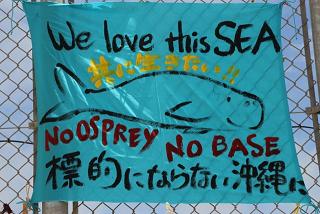 We love this SEA
共に生きたい!!
NO OSPREY NO BASE
標的にならない沖縄に